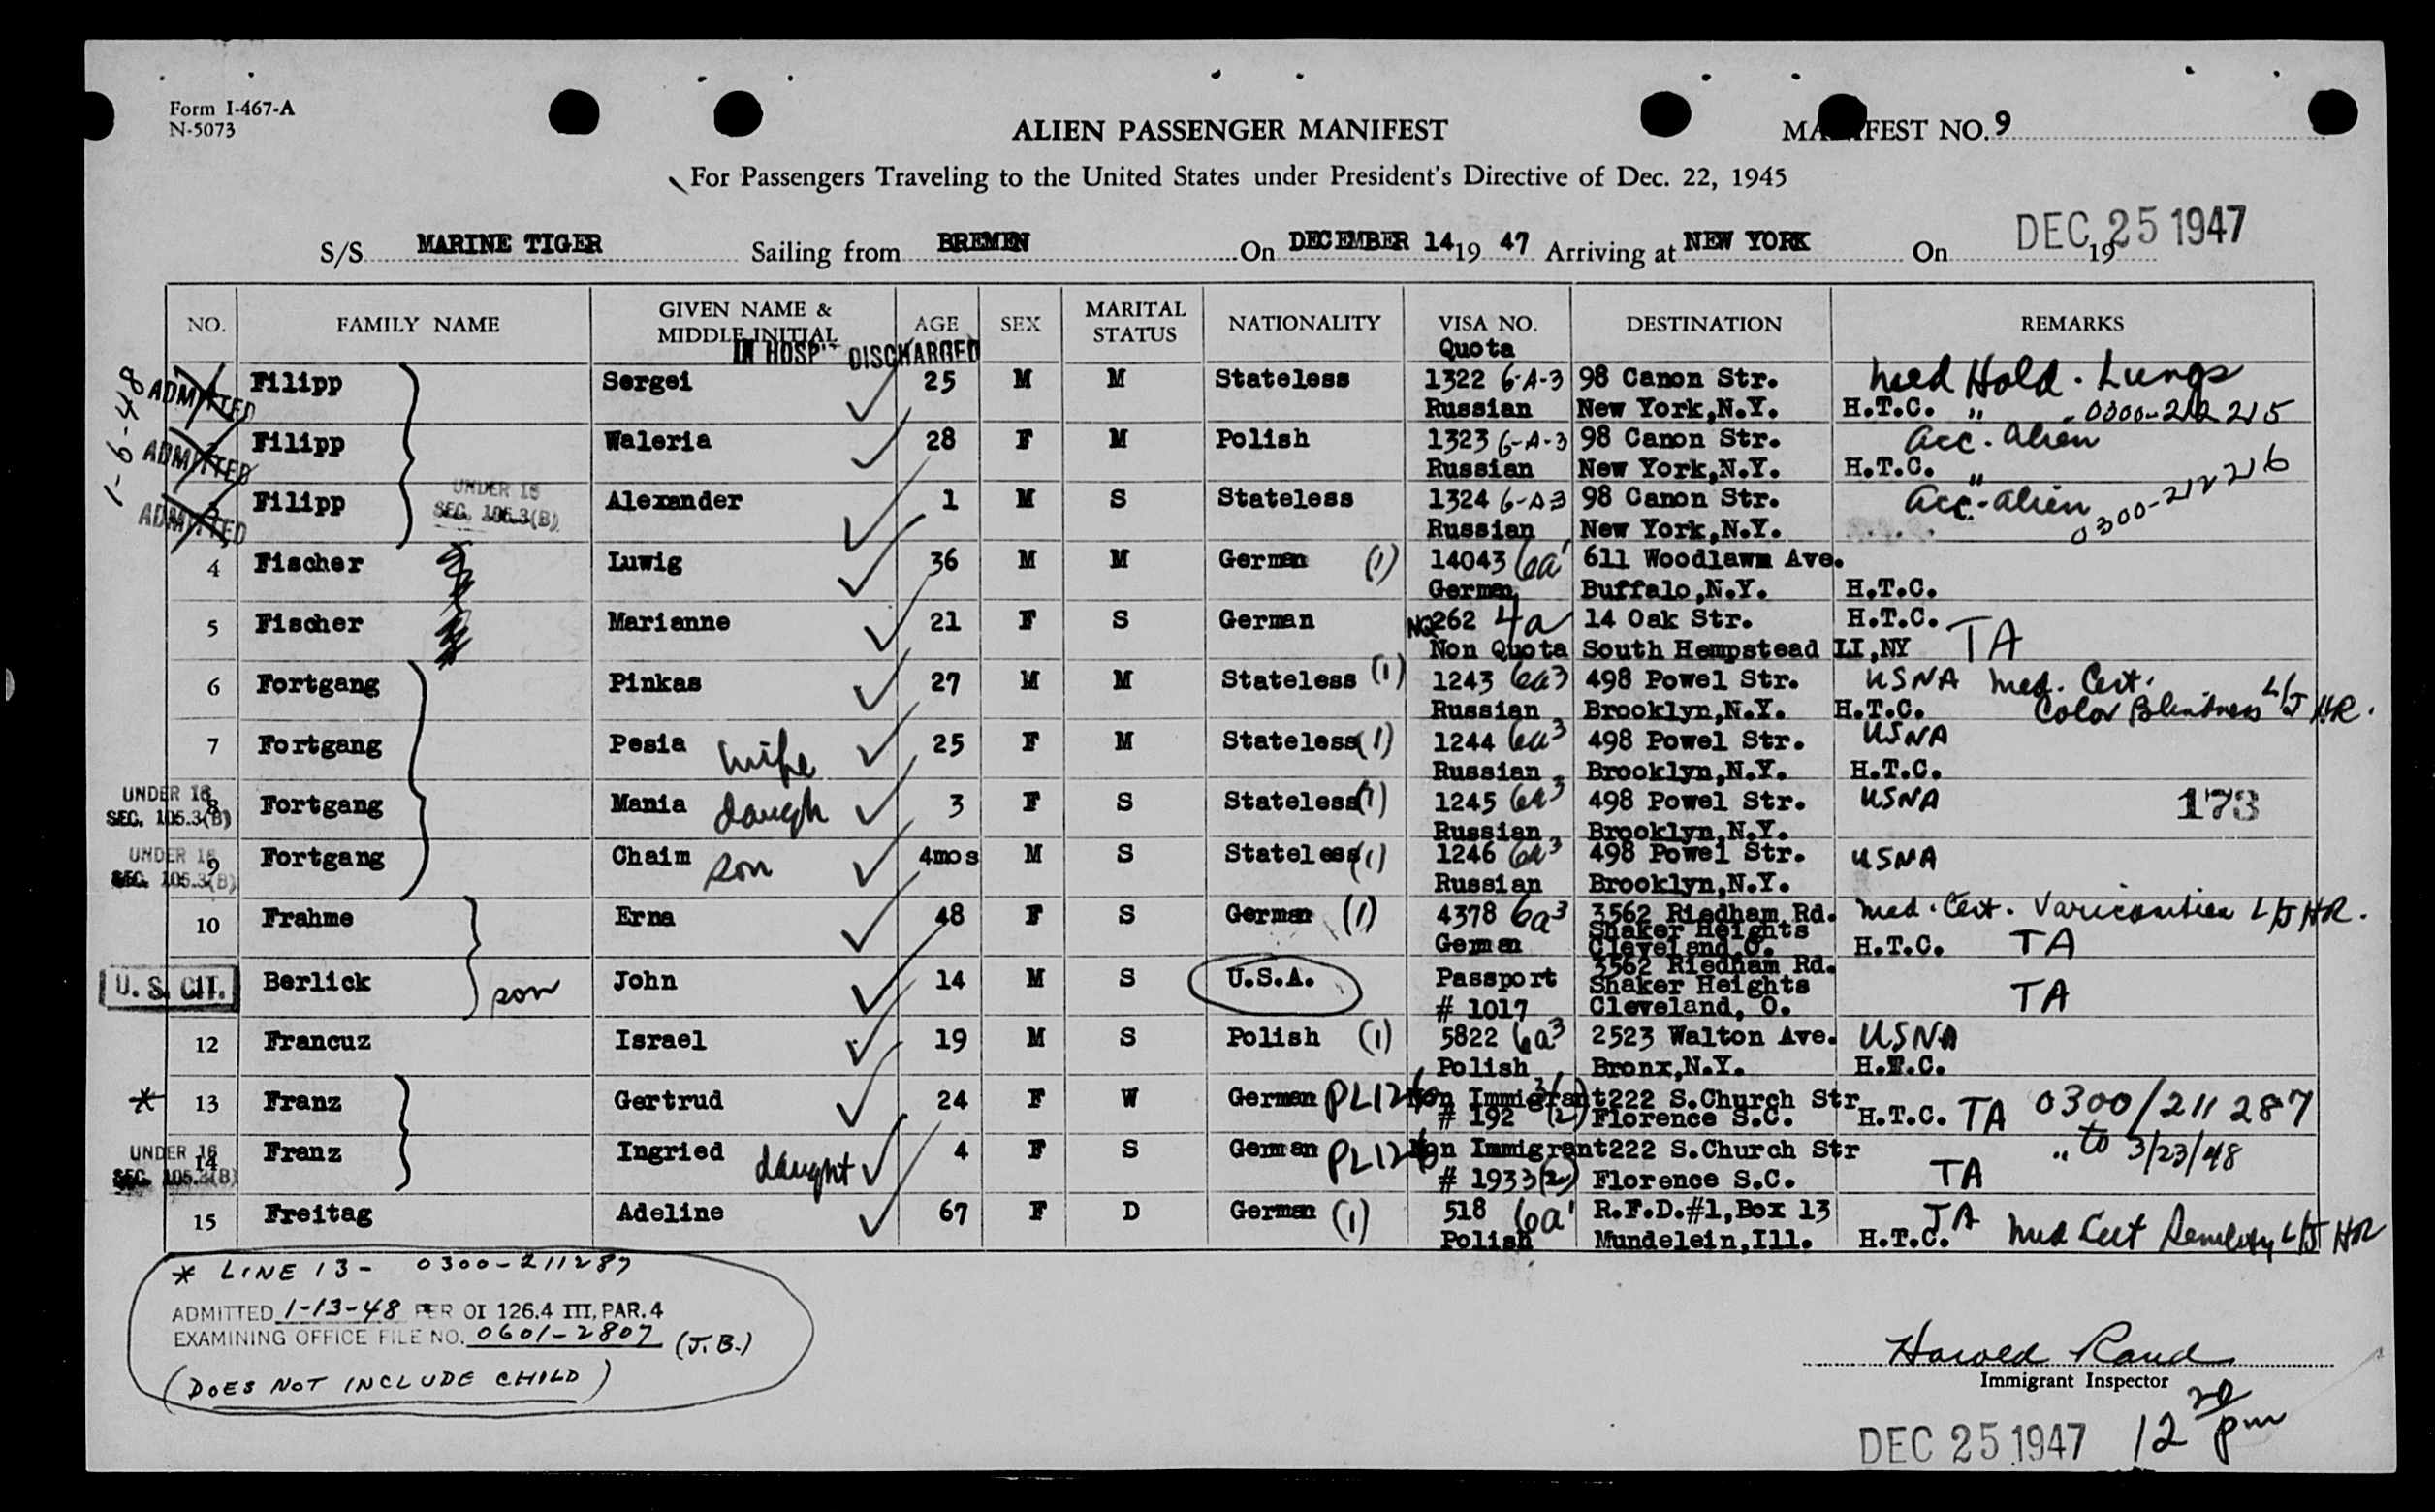 Form I-467-A
N-5073
ALIEN PASSENGER MANIFEST
MANIFEST NO. 9
For Passengers Traveling to the United States under President's Directive of Dec. 22, 1945
S/S MARINE TIGER Sailing from BREMEN On DECEMBER 14 19 47 Arriving at NEW YORK On 19 DEC 25 1947
NO. FAMILY NAME GIVEN NAME & MIDDLE INITIAL AGE SEX MARITAL STATUS NATIONALITY VISA NO. DESTINATION REMARKS
IN HOSP. DISCHARGED Quota
1-6-48
ADMITTED Filipp Sergei 25 M M Stateless 1322 6-A-3 98 Canon Str. Med Hold. Lungs
Russian New York,N.Y. H.T.C. " 0300-212215
ADMITTED Filipp Waleria 28 F M Polish 1323 6-A-3 98 Canon Str. acc. alien
Russian New York,N.Y. H.T.C. "
ADMITTED Filipp UNDER 16 SEC. 105.3(B) Alexander 1 M S Stateless 1324 6-A3 98 Canon Str. acc. alien 0300-212216
Russian New York,N.Y.
4 Fischer Luwig 36 M M German (1) 14043 6a1 611 Woodlawn Ave.
German Buffalo,N.Y. H.T.C.
5 Fischer Marianne 21 F S German NQ262 4a 14 Oak Str. H.T.C.
Non Quota South Hempstead LI,NY TA
6 Fortgang Pinkas 27 M M Stateless (1) 1243 6a3 498 Powel Str. USNA Med. Cert.
Russian Brooklyn,N.Y. H.T.C. Color Blindness L/J HR.
7 Fortgang Pesia wife 25 F M Stateless (1) 1244 6a3 498 Powel Str. USNA
Russian Brooklyn,N.Y. H.T.C.
UNDER 16 SEC. 105.3(B) 8 Fortgang Mania daugh 3 F S Stateless (1) 1245 6a3 498 Powel Str. USNA 173
Russian Brooklyn,N.Y.
UNDER 16 SEC. 105.3(B) 9 Fortgang Chaim son 4mos M S Stateless (1) 1246 6a3 498 Powel Str. USNA
Russian Brooklyn,N.Y.
10 Frahme Erna 48 F S German (1) 4378 6a3 3562 Riedham Rd. Med. Cert. Varicosities L/J HR.
German Shaker Heights Cleveland,O. H.T.C. TA
U. S. CIT. 11 Berlick son John 14 M S U.S.A. Passport 3562 Riedham Rd. Shaker Heights TA
# 1017 Cleveland, O.
12 Francuz Israel 19 M S Polish (1) 5822 6a3 2523 Walton Ave. USNA
Polish Bronx,N.Y. H.T.C.
* 13 Franz Gertrud 24 F W German PL126 Non Immigrant 222 S.Church Str H.T.C. TA 0300/211287
# 192 (2) Florence S.C.
UNDER 16 SEC. 105.3(B) 14 Franz Ingried daught 4 F S German PL126 Non Immigrant 222 S.Church Str " to 3/23/48
# 1933 (2) Florence S.C. TA
15 Freitag Adeline 67 F D German (1) 518 6a1 R.F.D.#1,Box 13 TA
Polish Mundelein,Ill. H.T.C. Med Cert L/J HR
* LINE 13- 0300-211287
ADMITTED 1-13-48 PER OI 126.4 III, PAR. 4
EXAMINING OFFICE FILE NO. 0601-2807 (J.B.)
(DOES NOT INCLUDE CHILD)
Harold Rand
Immigrant Inspector
DEC 25 1947 12 20 pm